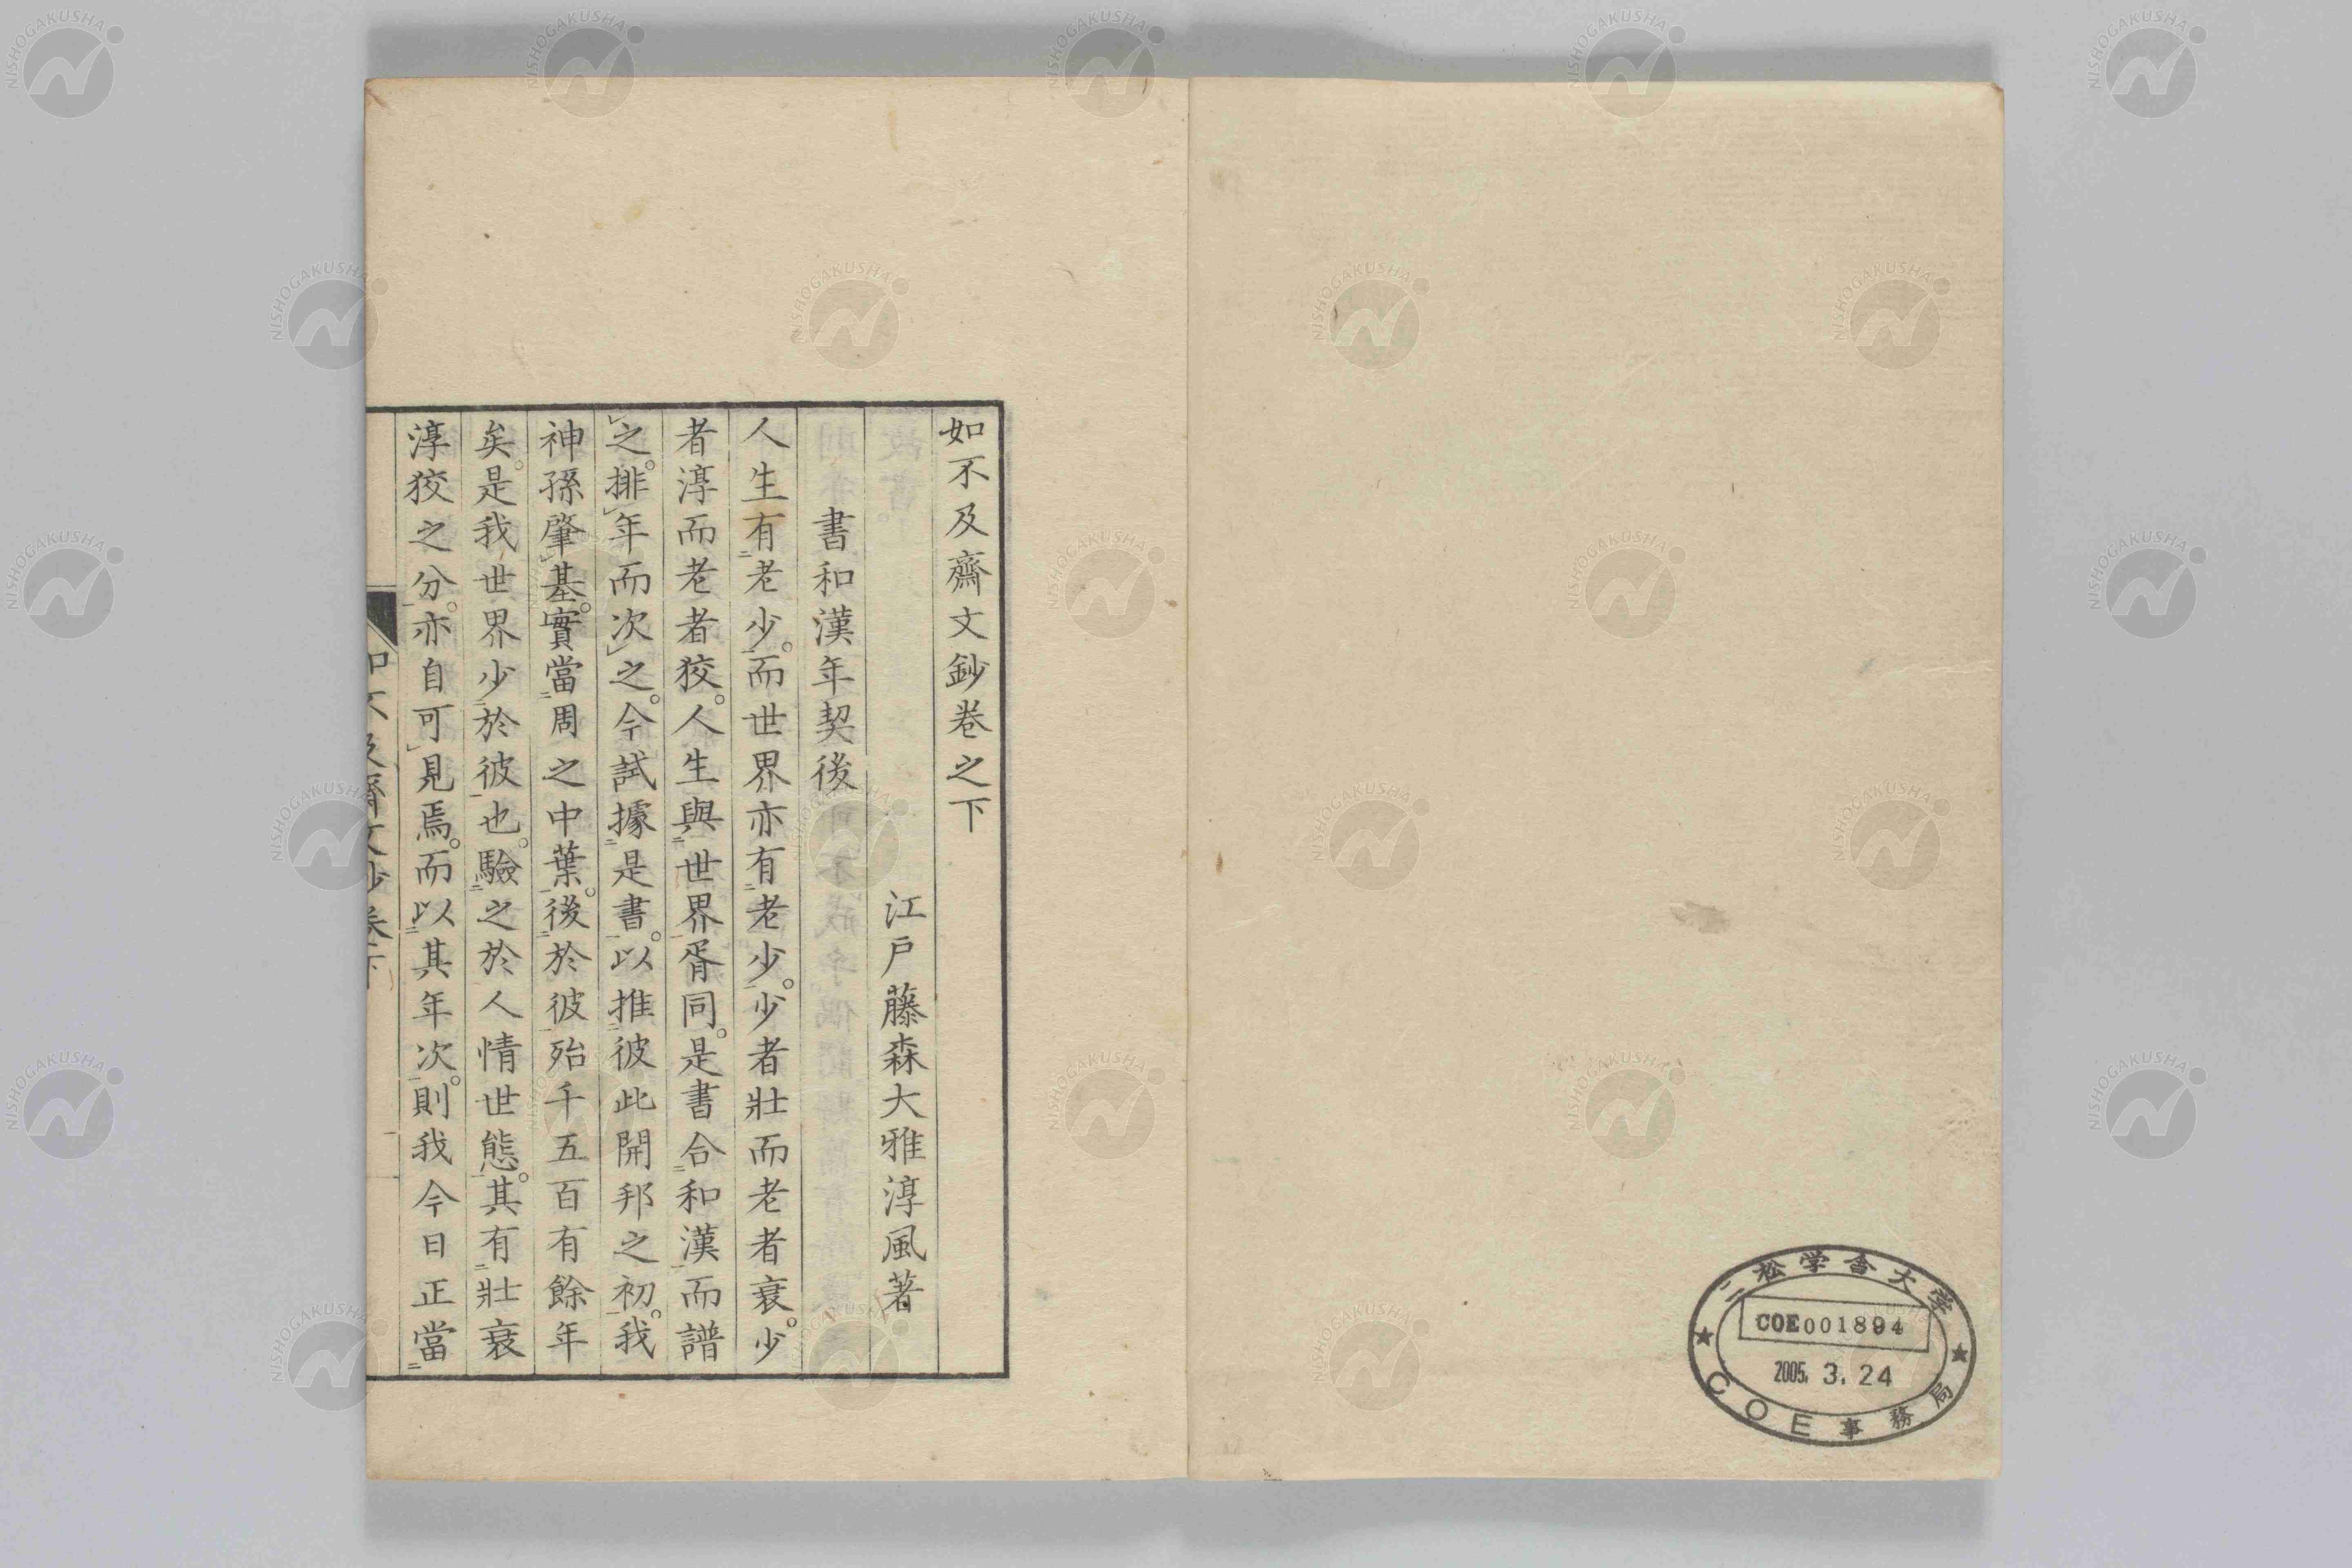 如不及齋文鈔卷之下
江戶藤森大雅淳風著
書和漢年契後
人生有老少。而世界亦有老少。少者壯而老者衰。少
者淳而老者狡。人生與世界胥同。是書合和漢而譜
之。排年而次之。今試據是書。以推彼此開邦之初。我
神孫肇基。實當周之中葉。後於彼殆千五百有餘年
矣。是我世界少於彼也。驗之於人情世態。其有壯衰
淳狡之分。亦自可見焉。而以其年次。則我今日正當
如不及齋文鈔卷下
二松学舎大学
COE001894
2005. 3. 24
★COE事務局★
NISHOGAKUSHA